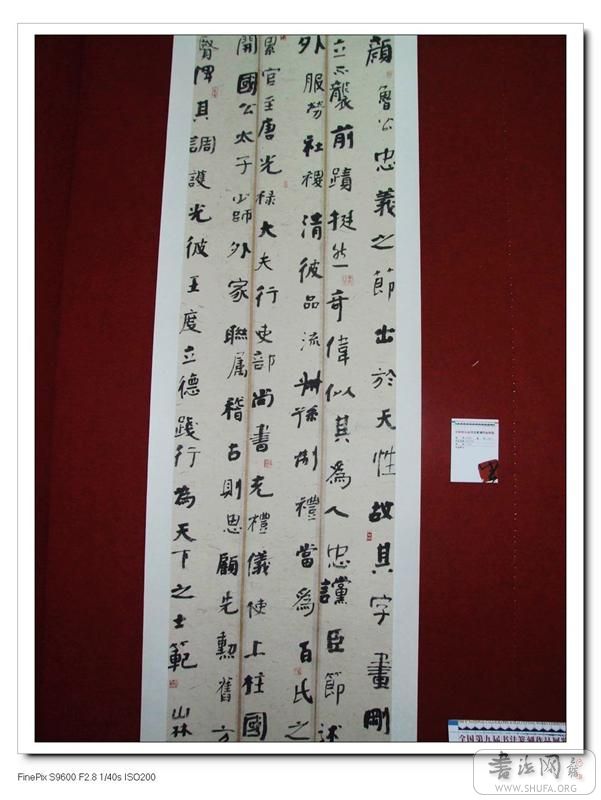 顏魯公忠義之節出於天性故其字畫剛
立不襲前蹟挺然奇偉似其為人忠讜臣節述
外服勞社稷清彼品流叔孫制禮當為百氏之
累官至唐光祿大夫行吏部尚書充禮儀使上柱國
開國公太子少師外家聯属稽古則思顧先勳舊方
賢俾其調護光彼王度立德踐行為天下之士範 山林
全国第九届书法篆刻作品展
书法网
WWW.SHUFA.ORG
FinePix S9600 F2.8 1/40s ISO200